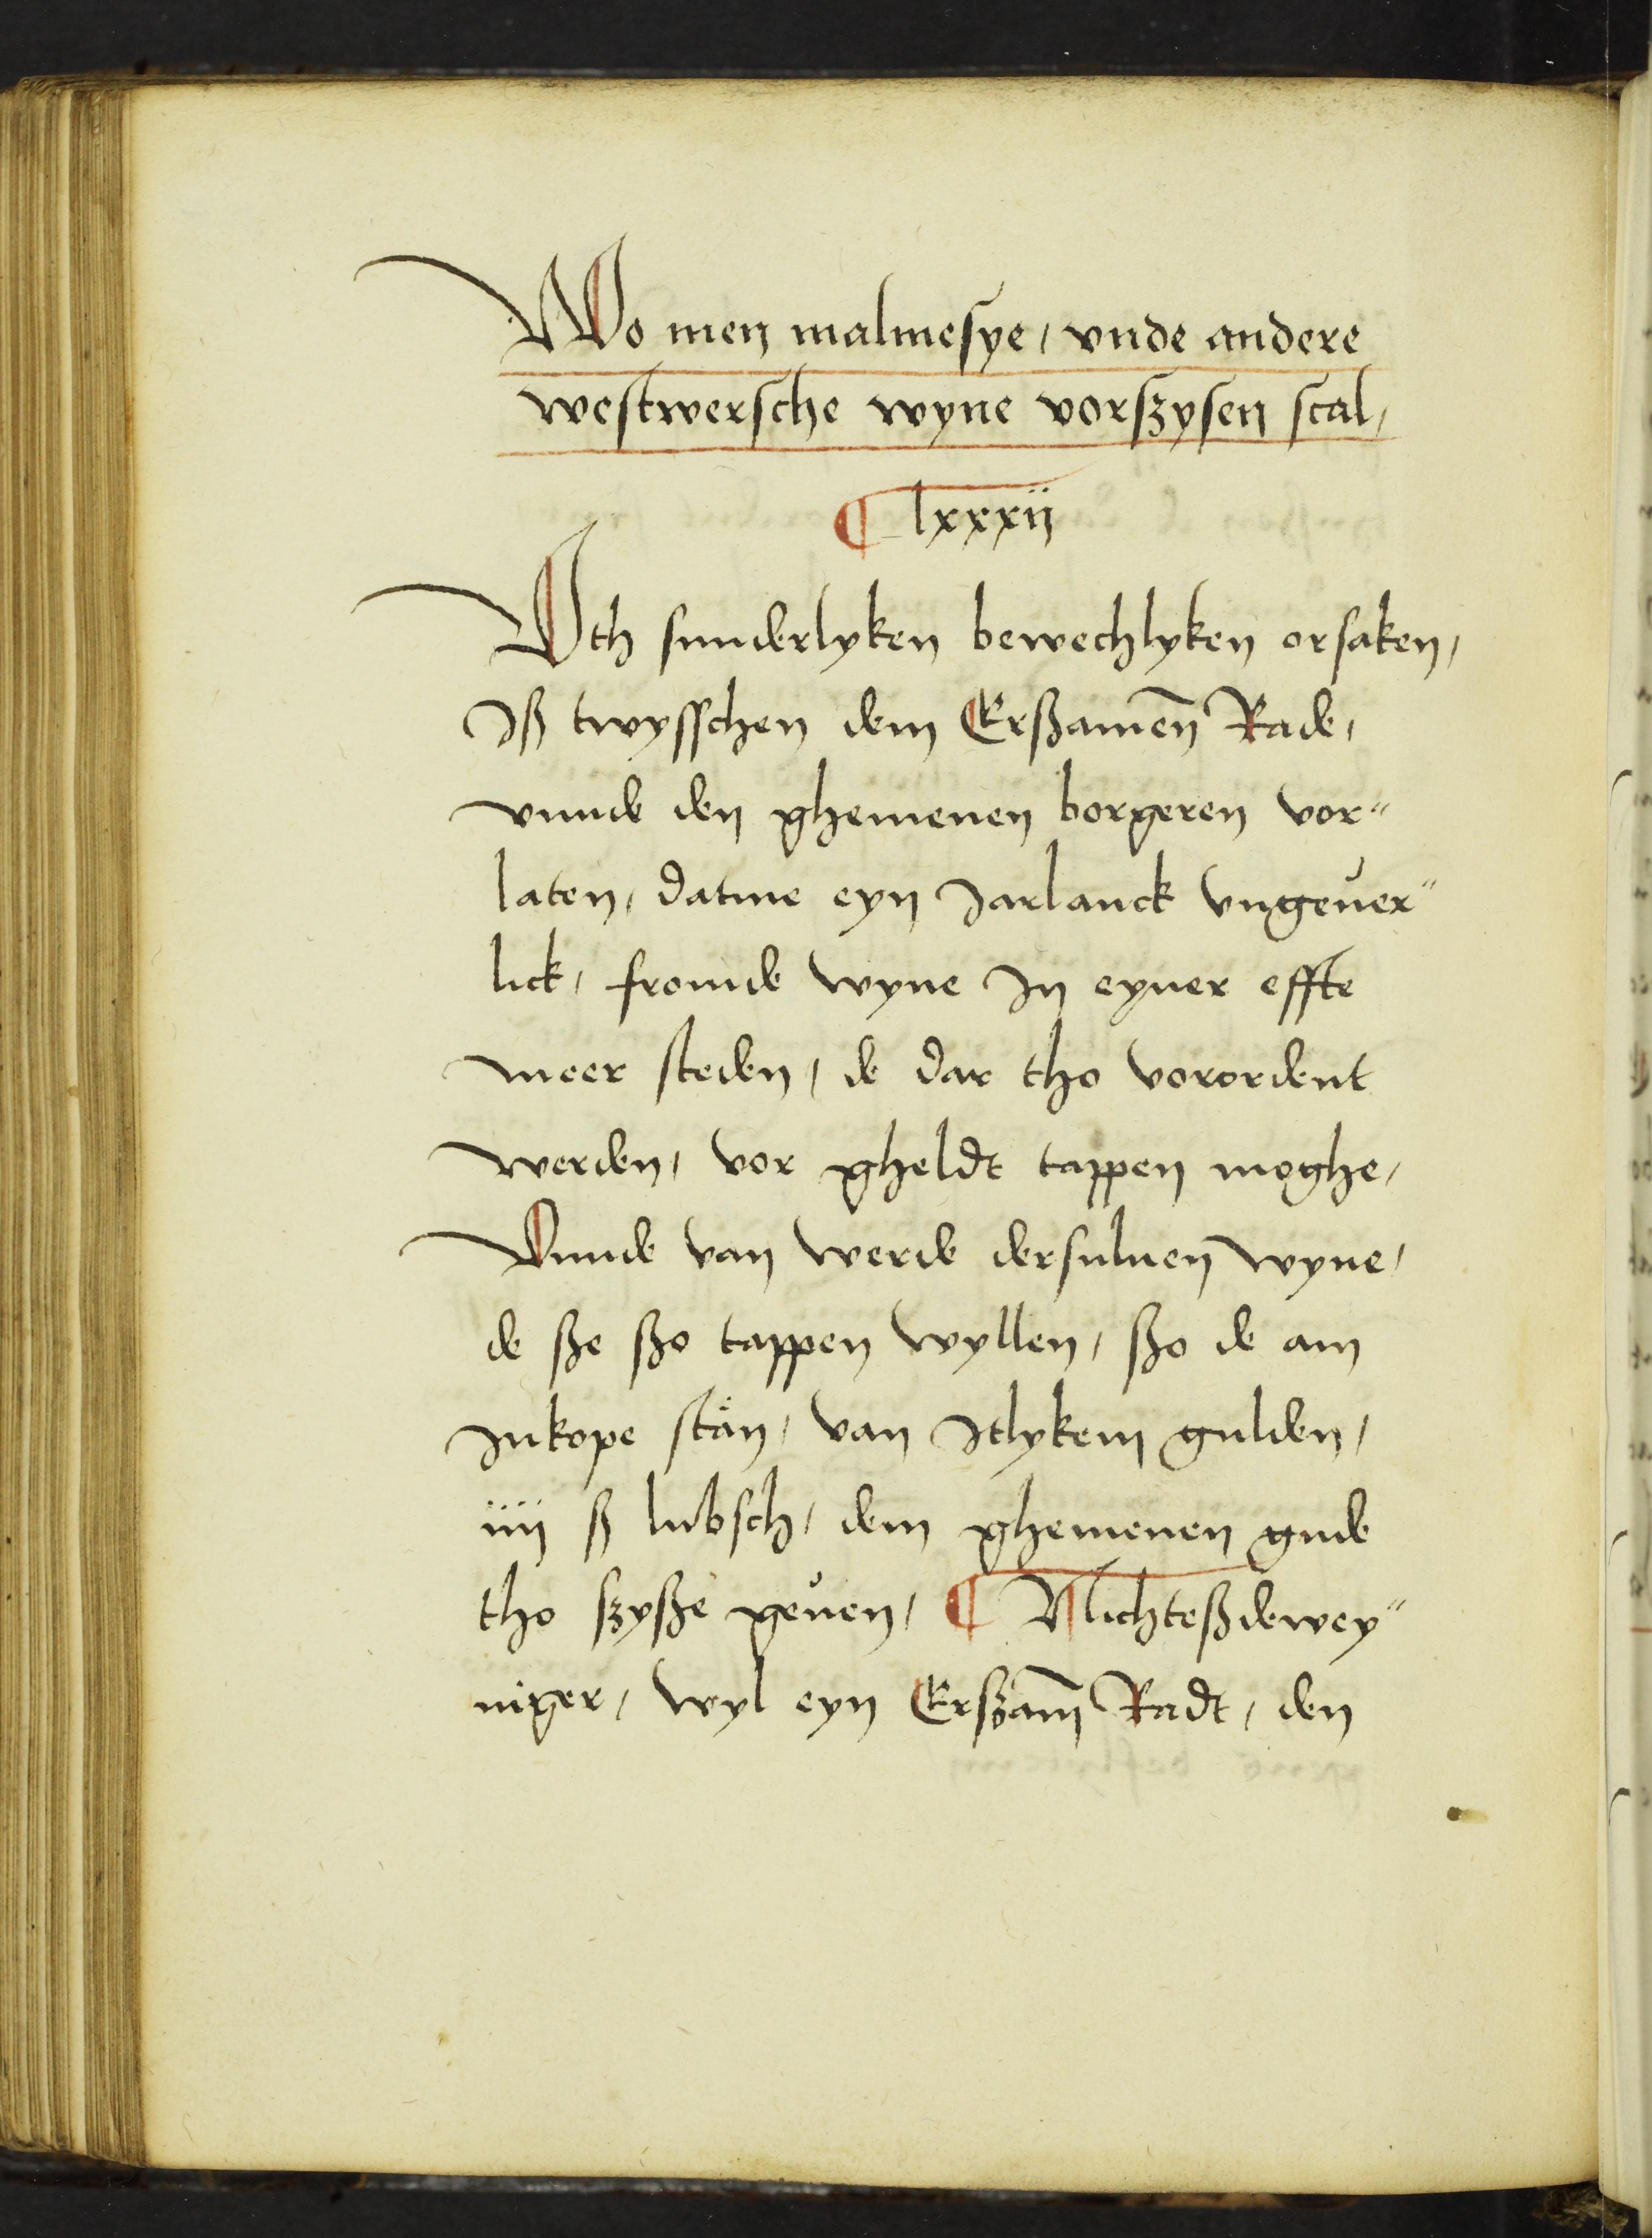 Wo men malmesye, vnde andere
westwersche wyne vorszysen scal,
¶ lxxxij
Vth sunderlyken bewechlyken orsaken,
Jß twysschen dem Erßamen̄ Rade,
vnnde den ghemenen borgeren vor"
laten, datme eyn Jarlanck vngeuer"
lick, fromde wyne Jn eyner effte
meer steden, de dar tho vorordent
werden, vor gheldt tappen moghe,
Vnnde van werde dersuluen wyne,
de sße sßo tappen wyllen, sßo de am
Jnkope stån, van Jtlykem gulden,
iiij ß lubsch, dem ghemenen gude
tho szysße geuen, ¶ Nichteßdewey"
niger, wyl eyn Erßam̄ Radt, den